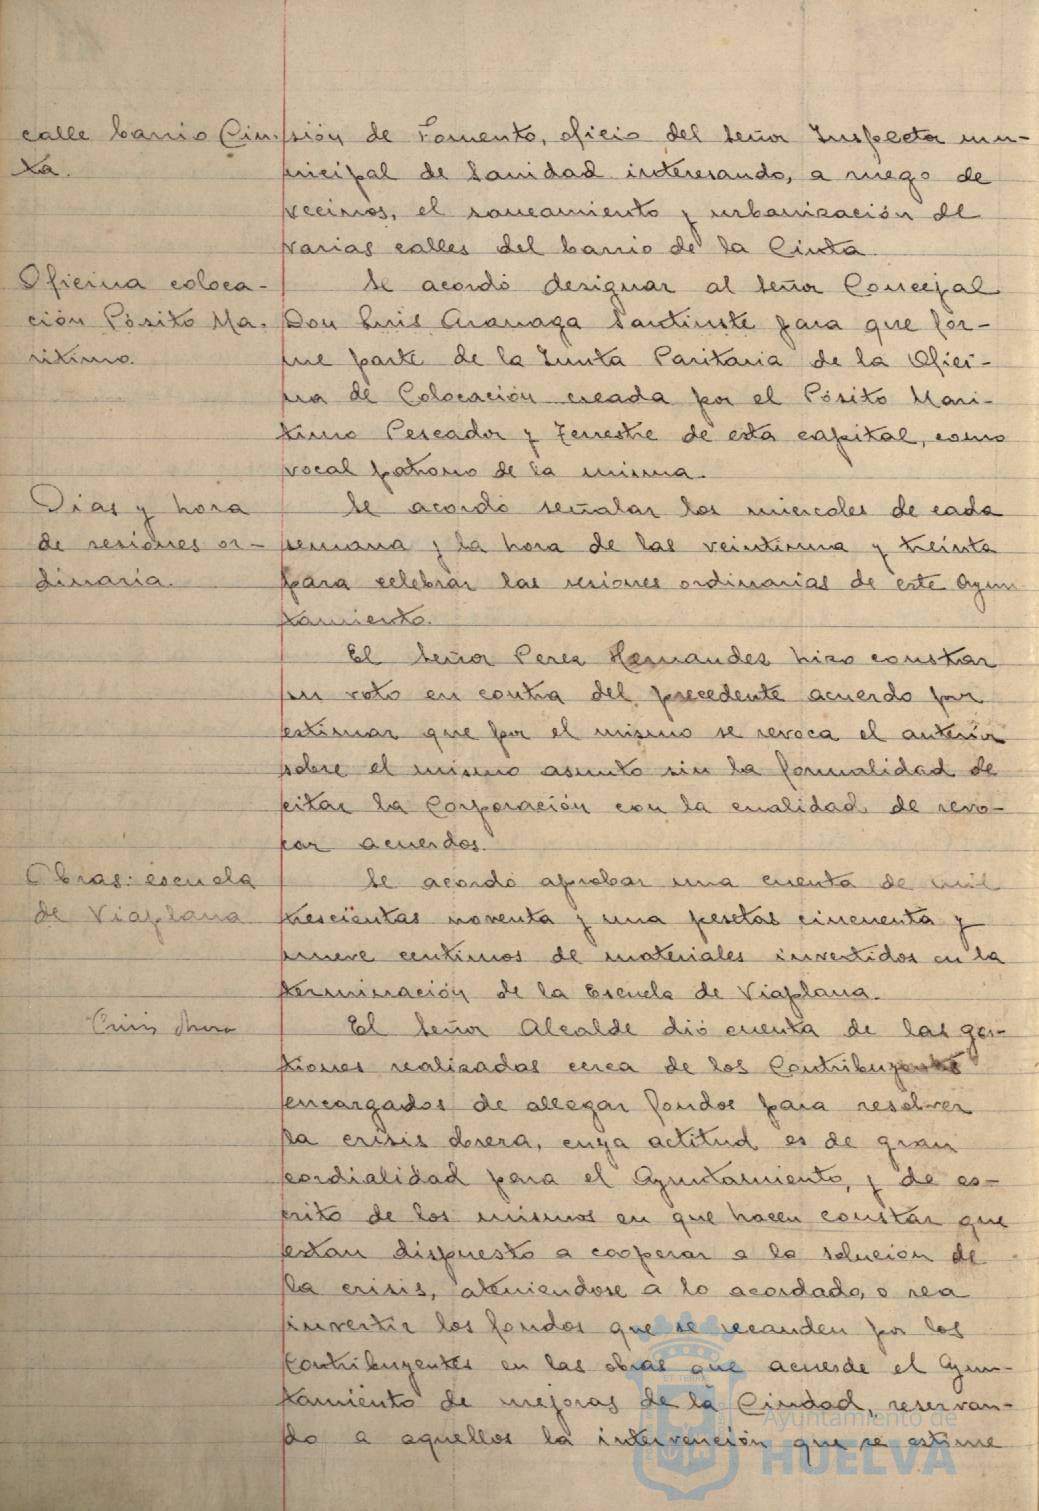 calle barrio Cin-
ta.
sión de Fomento, oficio del Señor Inspector mu-
nicipal de Sanidad interesando, a ruego de
vecinos, el saneamiento y urbanización de
varias calles del barrio de la Cinta.
Oficina coloca-
ción Pósito Ma-
ritimo.
Se acordó designar al Señor Concejal
Don Luis Aranaga Santiuste para que for-
me parte de la Junta Paritaria de la Ofici-
na de Colocación creada por el Pósito Mari-
timo Pescador y Terrestre de esta capital, como
vocal patrono de la misma.
Dias y hora
de sesiones or-
dinaria.
Se acordó señalar los miercoles de cada
semana y la hora de las veintiuna y treinta
para celebrar las sesiones ordinarias de este Ayun
tamiento.
El Señor Perez Hernandez hizo constar
su voto en contra del precedente acuerdo por
estimar que por el mismo se revoca el anterior
sobre el mismo asunto sin la formalidad de
citar la Corporación con la cualidad de revo-
car acuerdos.
Obras: escuela
de Viaplana
Se acordó aprobar una cuenta de mil
trescientas noventa y una pesetas cincuenta y
nueve centimos de materiales invertidos en la
terminación de la Escuela de Viaplana.
Crisis obrera
El Señor Alcalde dió cuenta de las ges-
tiones realizadas cerca de los Contribuyentes
encargados de allegar fondos para resolver
la crisis obrera, cuya actitud es de gran
cordialidad para el Ayuntamiento, y de es-
crito de los mismos en que hacen constar que
estan dispuesto a cooperar a la solución de
la crisis, ateniendose a lo acordado, o sea
invertir los fondos que se recauden por los
Contribuyentes en las obras que acuerde el Ayun-
tamiento de mejoras de la Ciudad, reservan-
do a aquellos la intervención que se estime
Ayuntamiento de
HUELVA